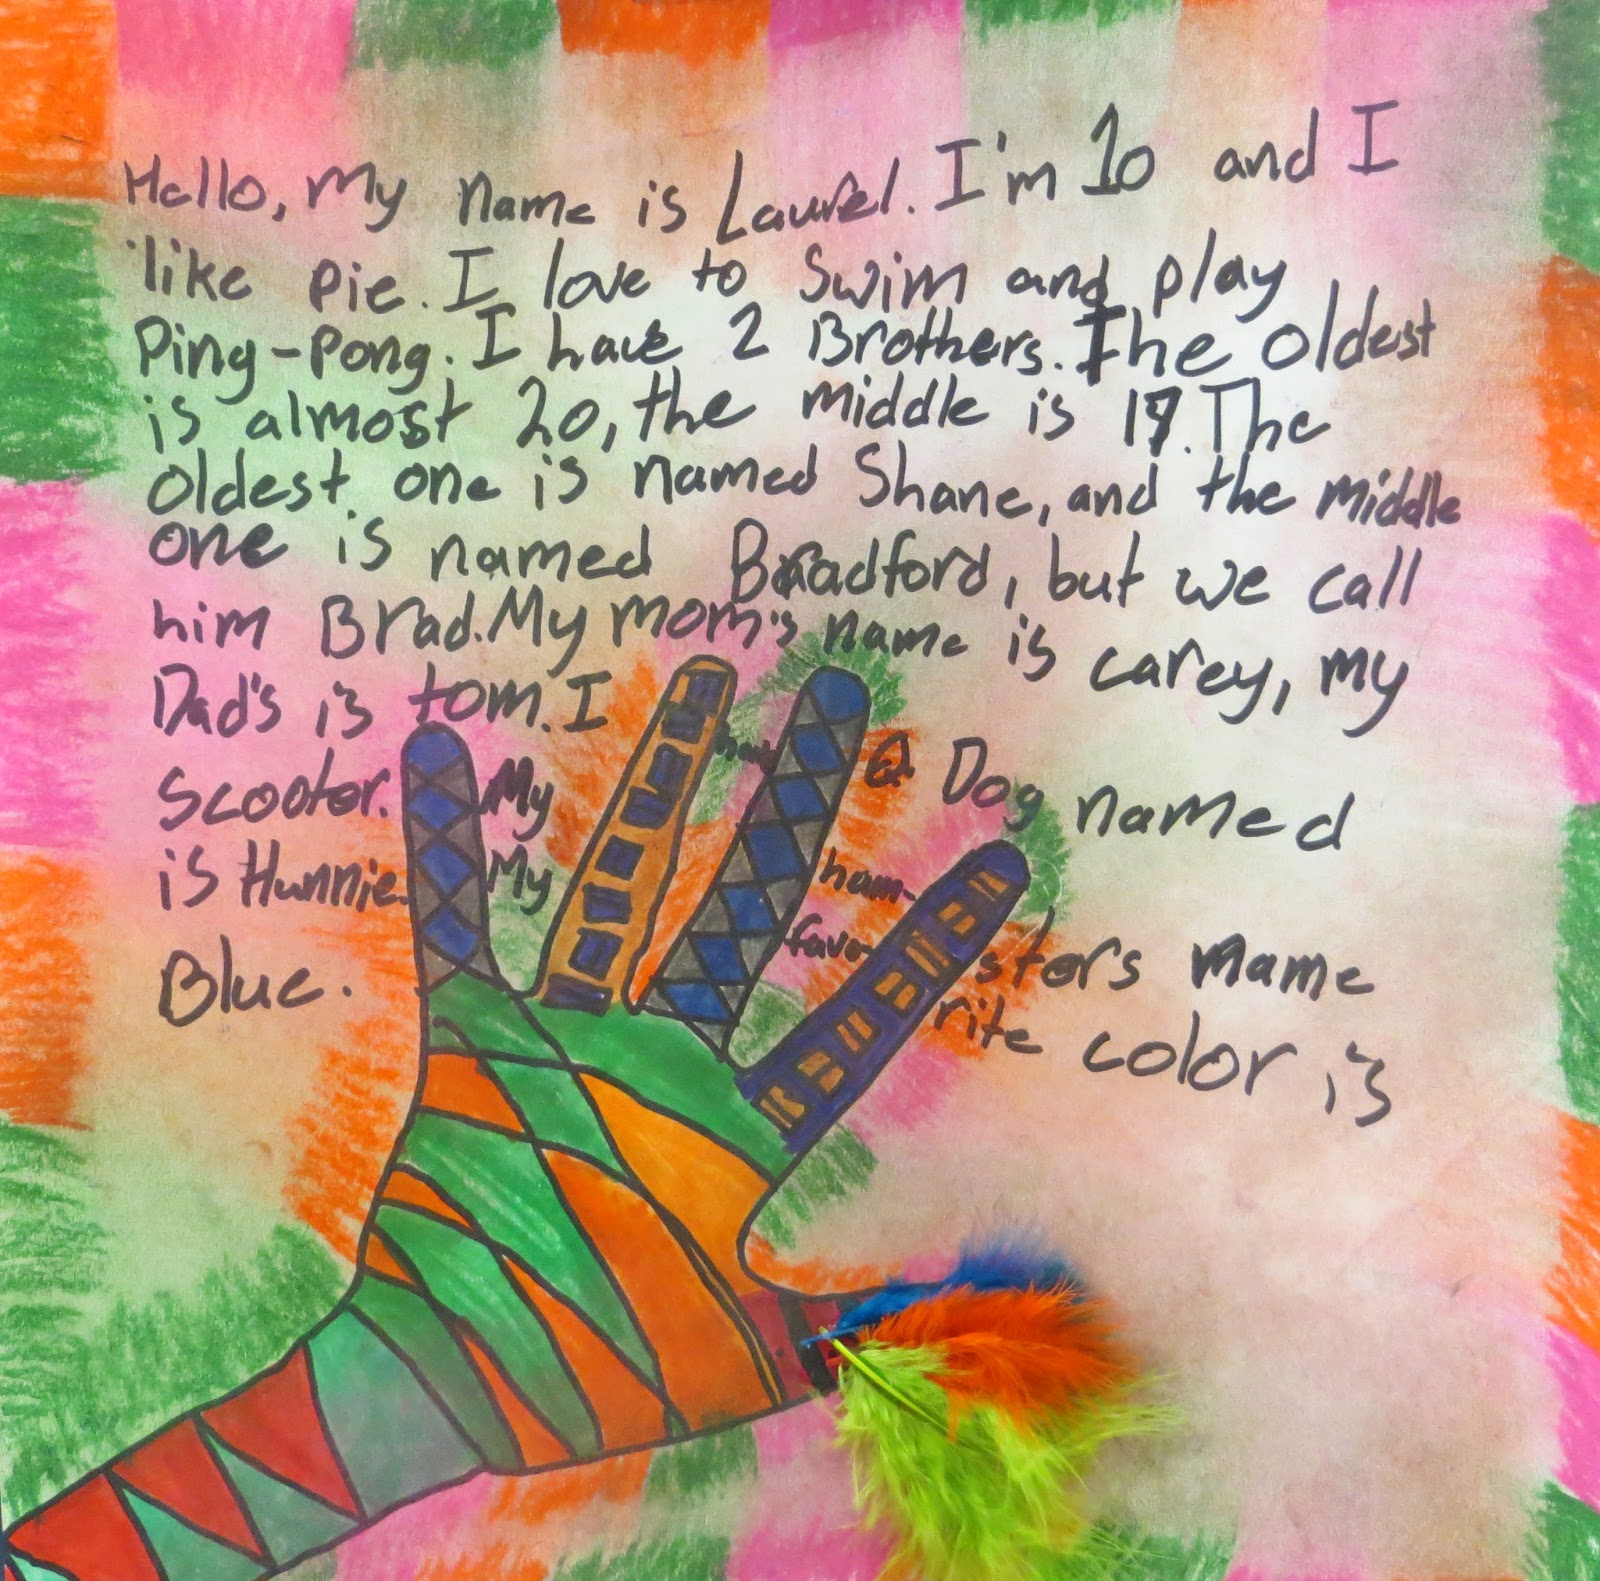 Hello, My name is Laurel. I'm 10 and I
like pie. I love to swim and play
Ping-Pong. I have 2 Brothers. The oldest
is almost 20, the middle is 17. The
oldest one is named Shane, and the middle
one is named Bradford, but we call
him Brad. My mom's name is carey, my
Dad's is tom. I have a Dog named
Scooter. My ham-sters name
is Hunnie. My favo-rite color is
Blue.